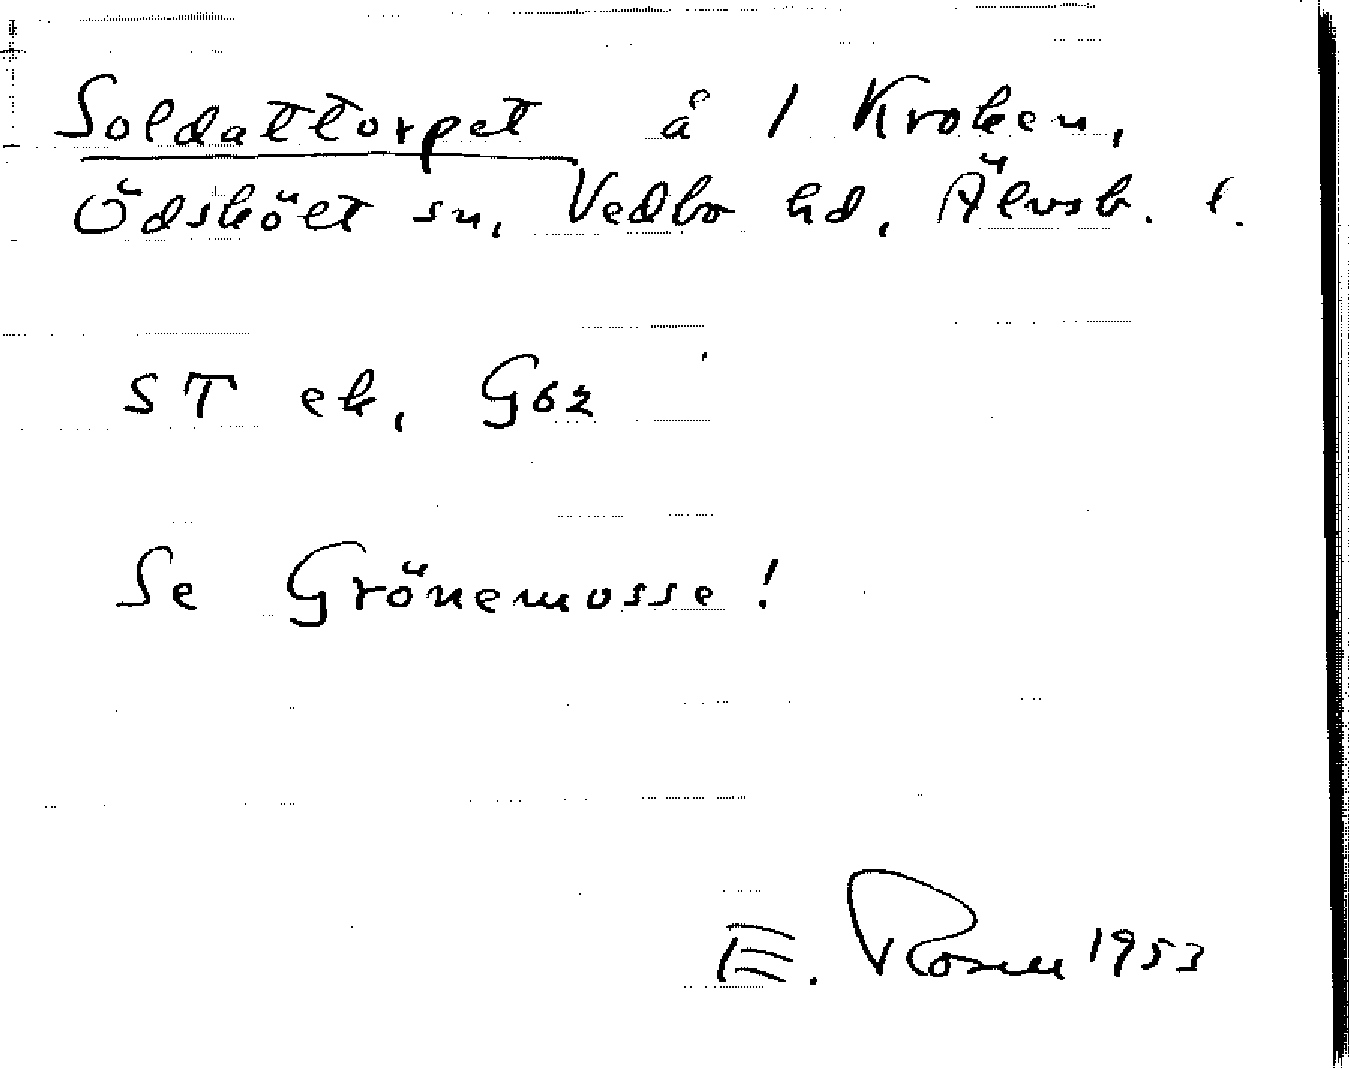 Soldattorpet å 1 Kroken,
Ödskölt sn, Vedbo hd, Älvsb. l.
ST ek, G62
Se Grönemosse!
E. Rosell 1953